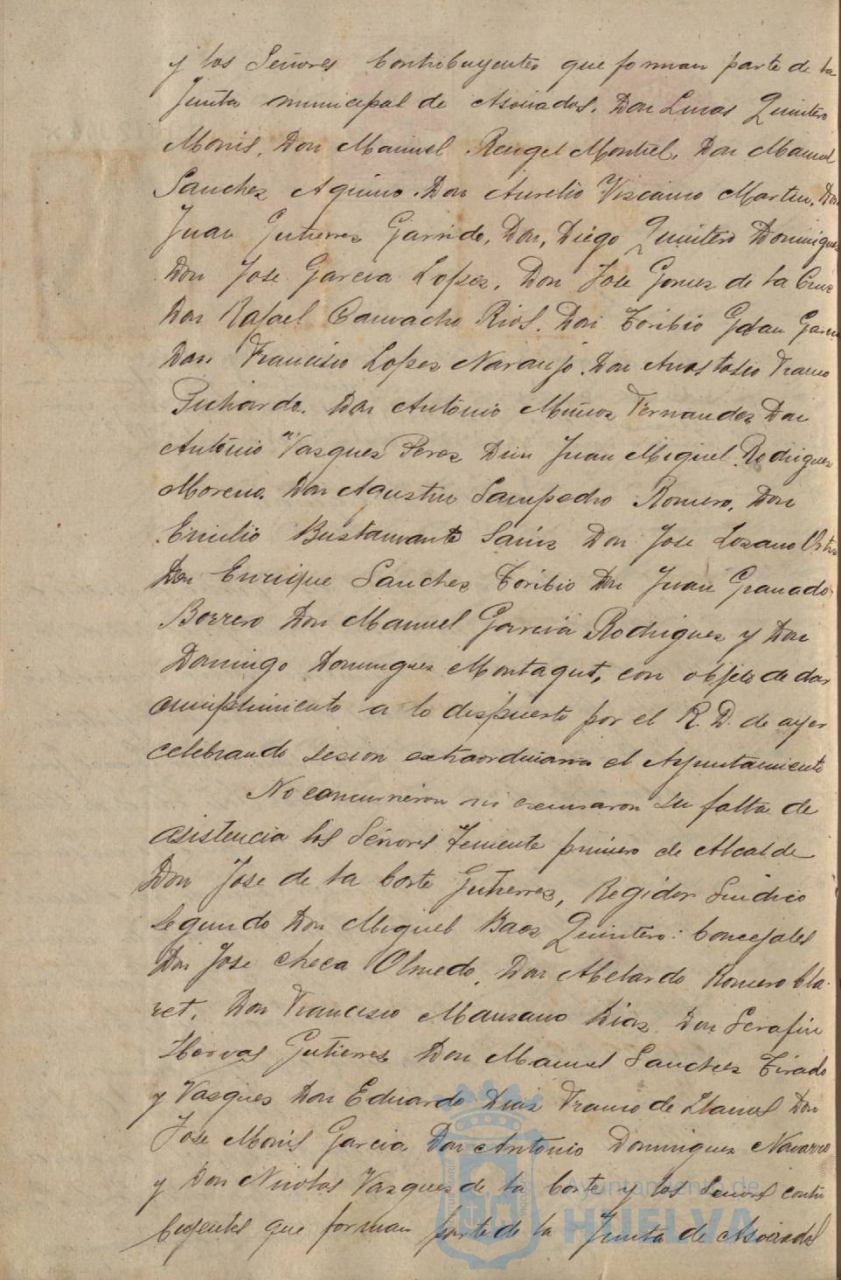 y los Señores Contribuyentes que forman parte de la
Junta municipal de Asociados, Don Lucas Quintero
Monis, Don Manuel Rengel Montiel, Don Manuel
Sanchez Aquino, Don Aurelio Viscaino Martin, Don
Juan Gutierres Garrido, Don, Diego Quintero Domingues
Don Jose Garcia Lopez, Don Jose Gomes de la Cruz
Don Rafael Camacho Rios, Don Toribio Garcia
Don Francisco Lopez Naranjo, Don Anastasio Franco
Pichardo, Don Antonio Muños Fernandez Don
Antonio Vasques Peres Don Juan Miguel Rodrigues
Moreno, Don Agustin Sampedro Romero, Don
Emilio Bustamante Sainz Don Jose Lozano
Don Enrique Sanchez Toribio Don Juan Granado
Borrero Don Manuel Garcia Rodriguez y Don
Domingo Domingues Montagut, con objeto de dar
cumplimiento a lo dispuesto por el R. D. de ayer
celebrando sesion extraordinaria el Ayuntamiento
No concurrieron ni escusaron su falta de
asistencia los Señores Teniente primero de Alcalde
Don Jose de la Corte Gutierres, Regidor Sindico
Segundo Don Miguel Baez Quintero: Concejales
Don Jose Checa Olmedo, Don Abelardo Romero Cla-
ret, Don Francisco Manzano Dias Don Serafin
Gutierres Don Manuel Sanchez Tirado
y Vasques Don Eduardo Dias Franco de Llanos Don
Jose Monis Garcia Don Antonio Domingues Navarro
y Don Nicolas Vazquez de la Corte y los Señores contri
buyentes que forman parte de la Junta de Asociados
Ayuntamiento de
HUELVA